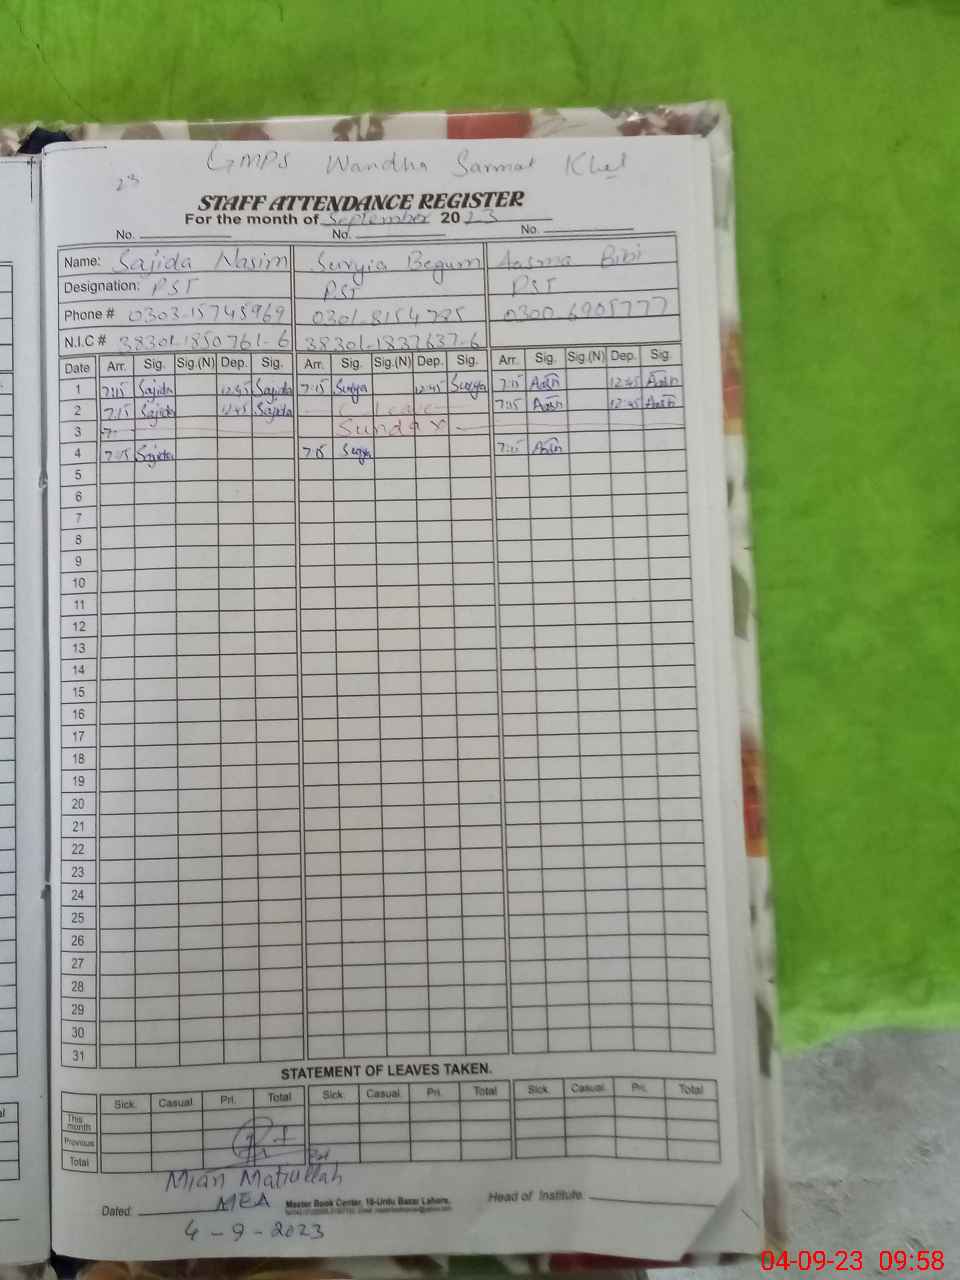 GMPS Wandha Sarmat Khel
23
STAFF ATTENDANCE REGISTER
For the month of September 2023
No. No. No.
Name: Sajida Nasim Surryia Begum Aasma Bibi
Designation: PST PST PST
Phone # 0303-15745969 0301-8154785 0300 6905777
N.I.C # 38301-1850761-6 38301-1837637-6
Date Arr. Sig. Sig.(N) Dep. Sig. Arr. Sig. Sig.(N) Dep. Sig. Arr. Sig. Sig.(N) Dep. Sig.
1 7:15 Sajida 12:45 Sajida 7:15 Surya 12:45 Surya 7:15 12:45
2 7:15 Sajida 12:45 Sajida C leave 7:15 12:45
3 Sunday
4 7:15 Sajida 7:15 Surya 7:15
5
6
7
8
9
10
11
12
13
14
15
16
17
18
19
20
21
22
23
24
25
26
27
28
29
30
31
STATEMENT OF LEAVES TAKEN.
Sick. Casual Pri. Total Sick. Casual. Pri. Total Sick. Casual. Pri. Total
This month
Previous
Total
Mian Matiullah
MEA
Dated: Master Book Center, 10-Urdu Bazar Lahore. Head of Institute.
4-9-2023
04-09-23 09:58